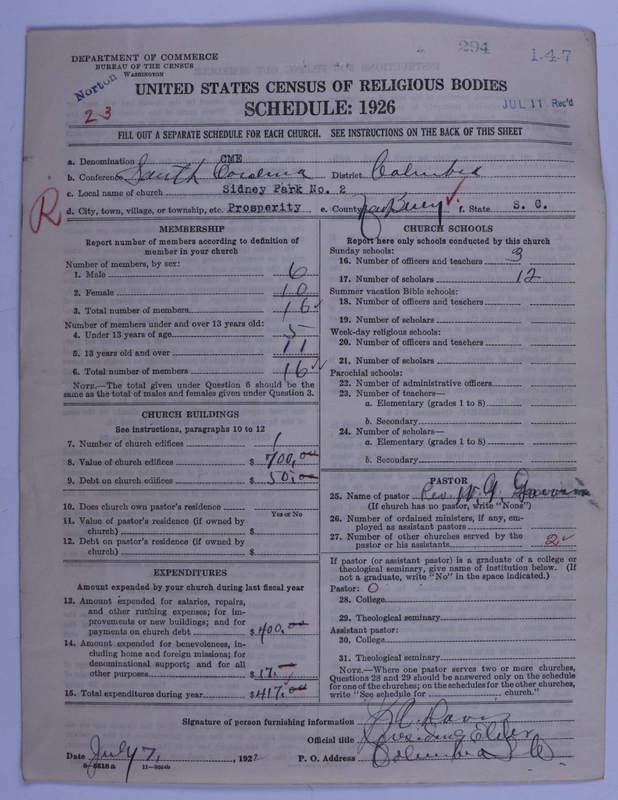 294
1-4-7
DEPARTMENT OF COMMERCE
BUREAU OF THE CENSUS
WASHINGTON
Norton
23
UNITED STATES CENSUS OF RELIGIOUS BODIES
SCHEDULE: 1926
JUL 11 Rec'd
FILL OUT A SEPARATE SCHEDULE FOR EACH CHURCH. SEE INSTRUCTIONS ON THE BACK OF THIS SHEET
a. Denomination CME
b. Conference South Carolina District Columbia
c. Local name of church Sidney Park No. 2
R
d. City, town, village, or township, etc. Prosperity e. County f. State S. C.
MEMBERSHIP
Report number of members according to definition of
member in your church
Number of members, by sex:
1. Male 6
2. Female 10
3. Total number of members 16 ✓
Number of members under and over 13 years old:
4. Under 13 years of age 5
5. 13 years old and over 11
6. Total number of members 16 ✓
NOTE.—The total given under Question 6 should be the
same as the total of males and females given under Question 3.
CHURCH BUILDINGS
See instructions, paragraphs 10 to 12
7. Number of church edifices 1
8. Value of church edifices $ 700.00
9. Debt on church edifices $ 50.00
10. Does church own pastor's residence
Yes or No
11. Value of pastor's residence (if owned by
church) $
12. Debt on pastor's residence (if owned by
church) $
EXPENDITURES
Amount expended by your church during last fiscal year
13. Amount expended for salaries, repairs,
and other running expenses; for im-
provements or new buildings; and for
payments on church debt $ 400.00
14. Amount expended for benevolences, in-
cluding home and foreign missions; for
denominational support; and for all
other purposes $ 17.
15. Total expenditures during year $ 417.00
CHURCH SCHOOLS
Report here only schools conducted by this church
Sunday schools:
16. Number of officers and teachers 3
17. Number of scholars 12
Summer vacation Bible schools:
18. Number of officers and teachers
19. Number of scholars
Week-day religious schools:
20. Number of officers and teachers
21. Number of scholars
Parochial schools:
22. Number of administrative officers
23. Number of teachers—
a. Elementary (grades 1 to 8)
b. Secondary
24. Number of scholars—
a. Elementary (grades 1 to 8)
b. Secondary
PASTOR
25. Name of pastor Rev. W. G.
(If church has no pastor, write "None")
26. Number of ordained ministers, if any, em-
ployed as assistant pastors
27. Number of other churches served by the
pastor or his assistants 2 ✓
If pastor (or assistant pastor) is a graduate of a college or
theological seminary, give name of institution below. (If
not a graduate, write "No" in the space indicated.)
Pastor: O
28. College
29. Theological seminary
Assistant pastor:
30. College
31. Theological seminary
NOTE.—Where one pastor serves two or more churches,
Questions 28 and 29 should be answered only on the schedule
for one of the churches; on the schedules for the other churches,
write "See schedule for church."
Signature of person furnishing information Davis
Official title Presiding Elder
Date July 7, 1927 P. O. Address Columbia S C
8-5518 a 11-8554b